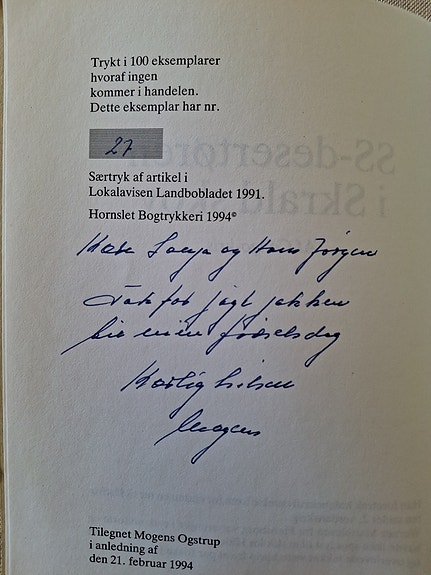 Trykt i 100 eksemplarer
hvoraf ingen
kommer i handelen.
Dette eksemplar har nr.
27
Særtryk af artikel i
Lokalavisen Landbobladet 1991.
Hornslet Bogtrykkeri 1994©
SS-desertøren
i Skrald
Kære Sonja og Hans Jørgen
Tak for jagt jakken
til min fødselsdag
Kærlig hilsen
Mogens
Tilegnet Mogens Ogstrup
i anledning af
den 21. februar 1994